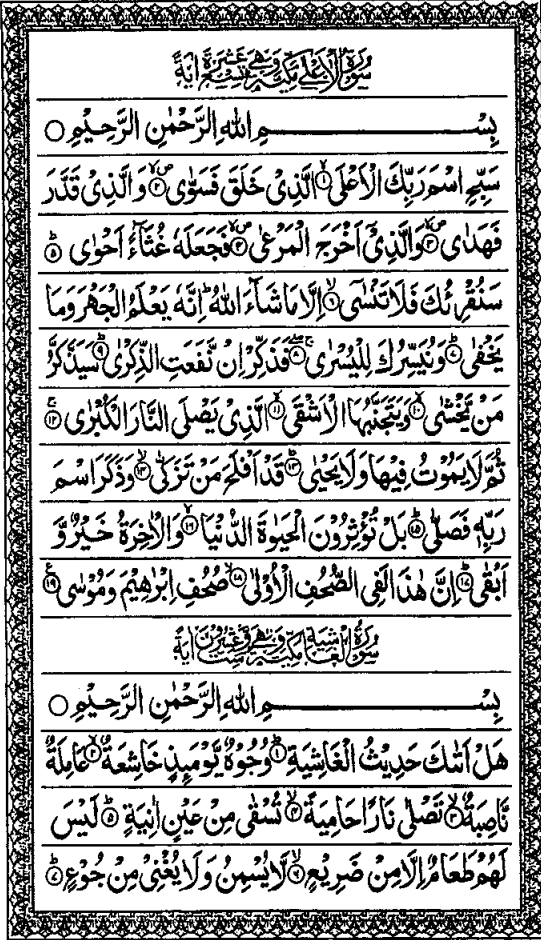 سُوْرَةُ الْاَعْلٰى مَكِّيَّةٌ وَّهِيَ تِسْعَ عَشَرَةَ اٰيَةً
بِسْــــــــــــمِ اللهِ الرَّحْمٰنِ الرَّحِيْمِ ○
سَبِّحِ اسْمَ رَبِّكَ الْاَعْلَى ۙ﴿۱﴾ الَّذِيْ خَلَقَ فَسَوّٰى ۪ۙ﴿۲﴾ وَالَّذِيْ قَدَّرَ
فَهَدٰى ۪ۙ﴿۳﴾ وَالَّذِيْۤ اَخْرَجَ الْمَرْعٰى ۪ۙ﴿۴﴾ فَجَعَلَهٗ غُثَآءً اَحْوٰى ؕ﴿۵﴾
سَنُقْرِئُكَ فَلَا تَنْسٰىۤ ۙ﴿۶﴾ اِلَّا مَا شَآءَ اللهُ ؕ اِنَّهٗ يَعْلَمُ الْجَهْرَ وَمَا
يَخْفٰى ؕ﴿۷﴾ وَنُيَسِّرُكَ لِلْيُسْرٰى ۚۖ﴿۸﴾ فَذَكِّرْ اِنْ نَّفَعَتِ الذِّكْرٰى ؕ﴿۹﴾ سَيَذَّكَّرُ
مَنْ يَّخْشٰى ۙ﴿۱۰﴾ وَيَتَجَنَّبُهَا الْاَشْقَى ۙ﴿۱۱﴾ الَّذِيْ يَصْلَى النَّارَ الْكُبْرٰى ۚ﴿۱۲﴾
ثُمَّ لَا يَمُوْتُ فِيْهَا وَلَا يَحْيٰى ؕ﴿۱۳﴾ قَدْ اَفْلَحَ مَنْ تَزَكّٰى ۙ﴿۱۴﴾ وَذَكَرَ اسْمَ
رَبِّهٖ فَصَلّٰى ؕ﴿۱۵﴾ بَلْ تُؤْثِرُوْنَ الْحَيٰوةَ الدُّنْيَا ۖ﴿۱۶﴾ وَالْاٰخِرَةُ خَيْرٌ وَّ
اَبْقٰى ؕ﴿۱۷﴾ اِنَّ هٰذَا لَفِي الصُّحُفِ الْاُوْلٰى ۙ﴿۱۸﴾ صُحُفِ اِبْرٰهِيْمَ وَمُوْسٰى ﴿۱۹﴾
سُوْرَةُ الْغَاشِيَةِ مَكِّيَّةٌ وَّهِيَ سِتٌّ وَّعِشْرُوْنَ اٰيَةً
بِسْــــــــــــمِ اللهِ الرَّحْمٰنِ الرَّحِيْمِ ○
هَلْ اَتٰىكَ حَدِيْثُ الْغَاشِيَةِ ؕ﴿۱﴾ وُجُوْهٌ يَّوْمَىِٕذٍ خَاشِعَةٌ ۙ﴿۲﴾ عَامِلَةٌ
نَّاصِبَةٌ ۙ﴿۳﴾ تَصْلٰى نَارًا حَامِيَةً ۙ﴿۴﴾ تُسْقٰى مِنْ عَيْنٍ اٰنِيَةٍ ؕ﴿۵﴾ لَيْسَ
لَهُمْ طَعَامٌ اِلَّا مِنْ ضَرِيْعٍ ۙ﴿۶﴾ لَّا يُسْمِنُ وَلَا يُغْنِيْ مِنْ جُوْعٍ ؕ﴿۷﴾